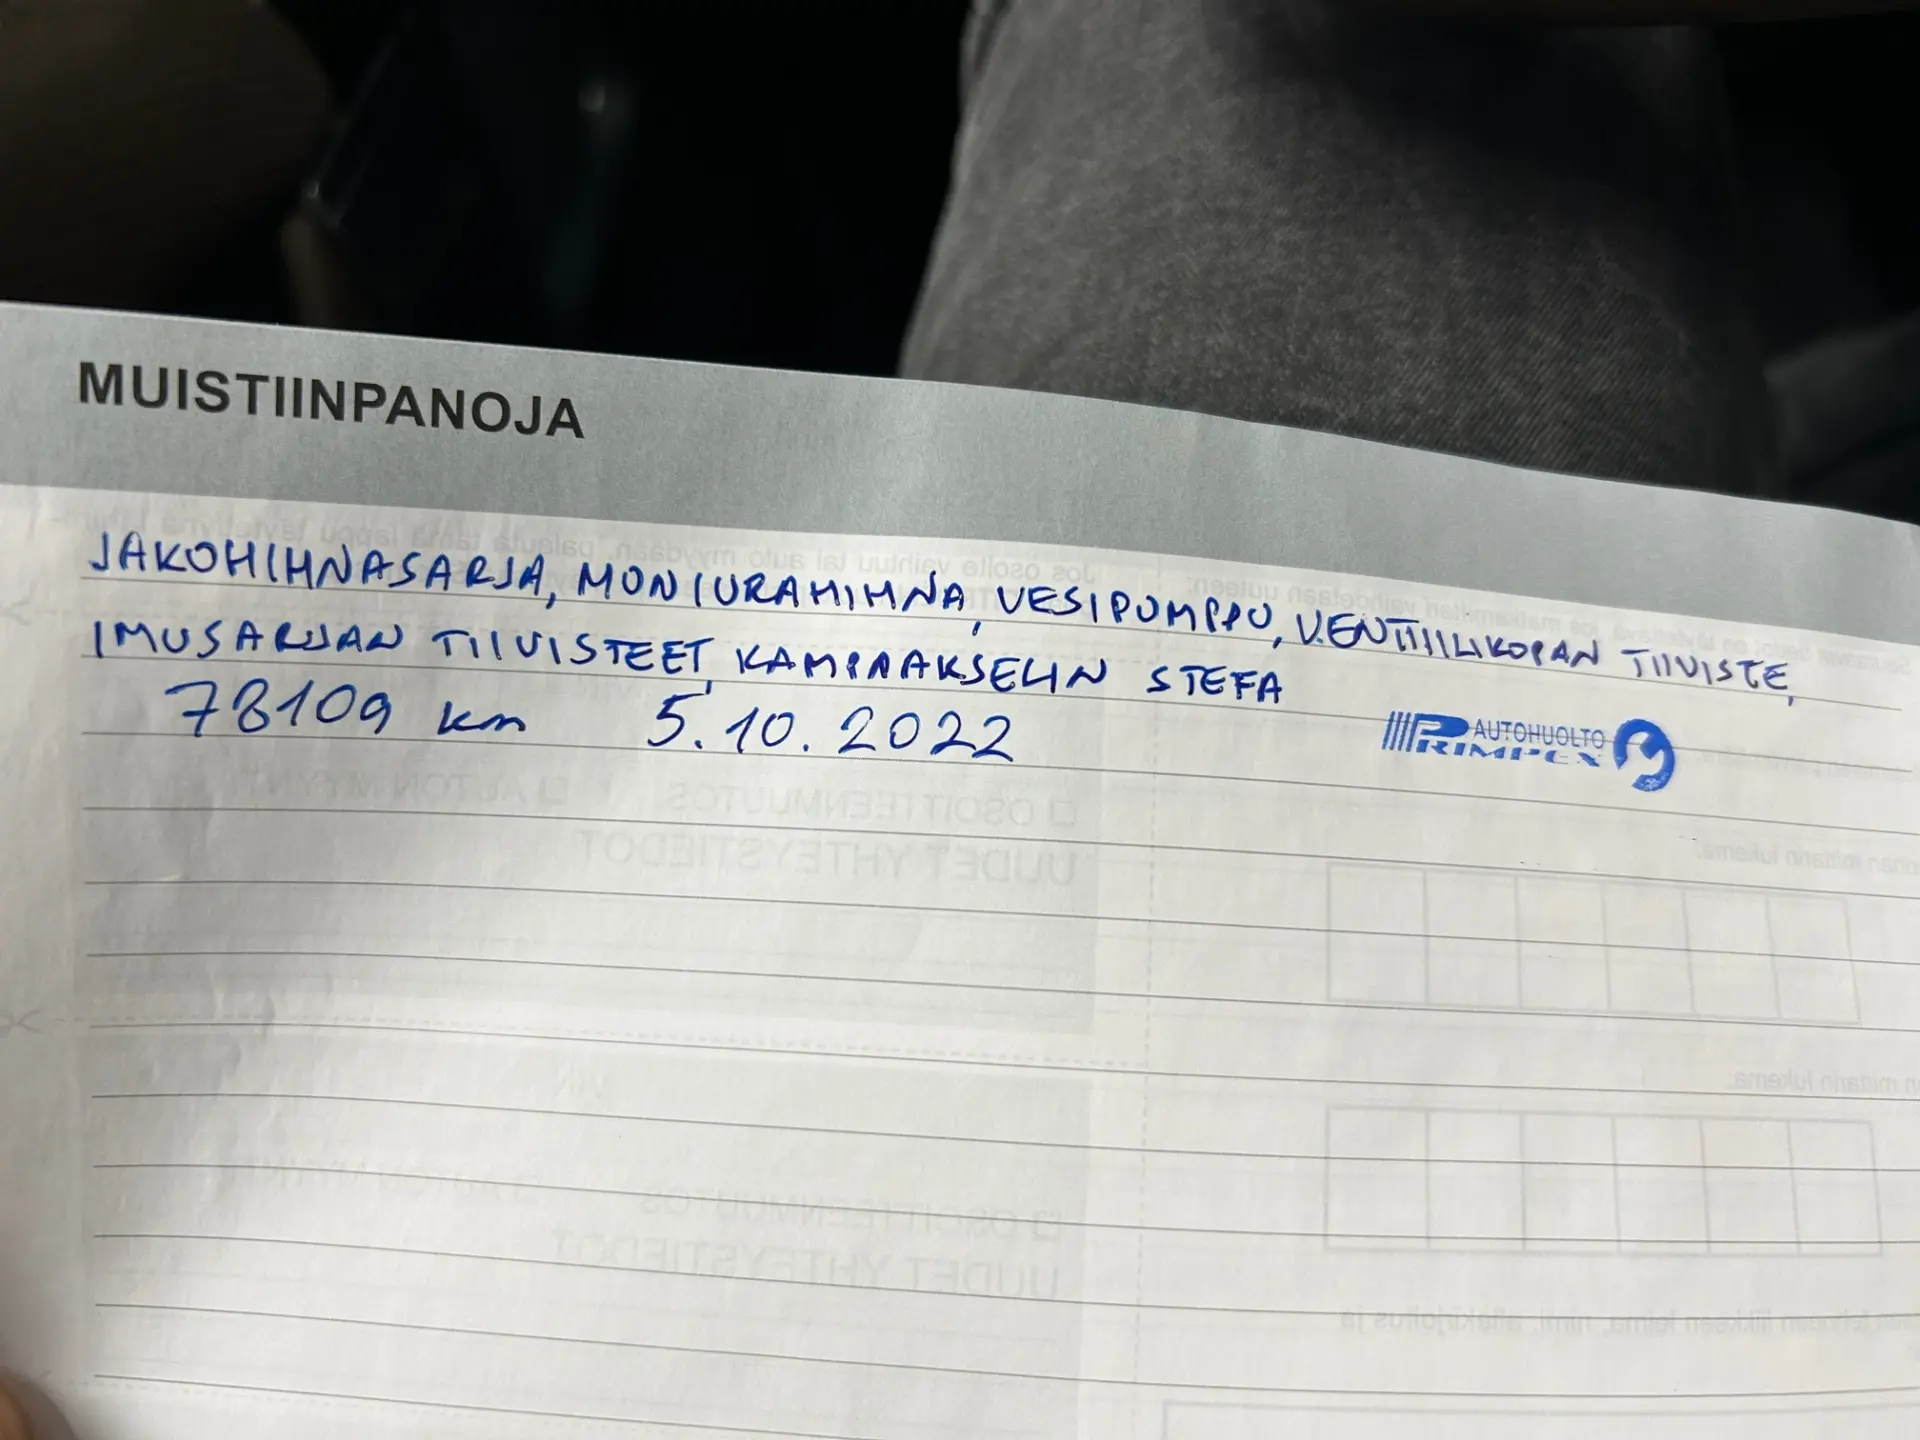 MUISTIINPANOJA
JAKOHIHNASARJA, MONIURAHIHNA, VESIPUMPPU, VENTTIILIKOPAN TIIVISTE,
IMUSARJAN TIIVISTEET, KAMPIAKSELIN STEFA
78109 km 5.10.2022
AUTOHUOLTO
PRIMPEX